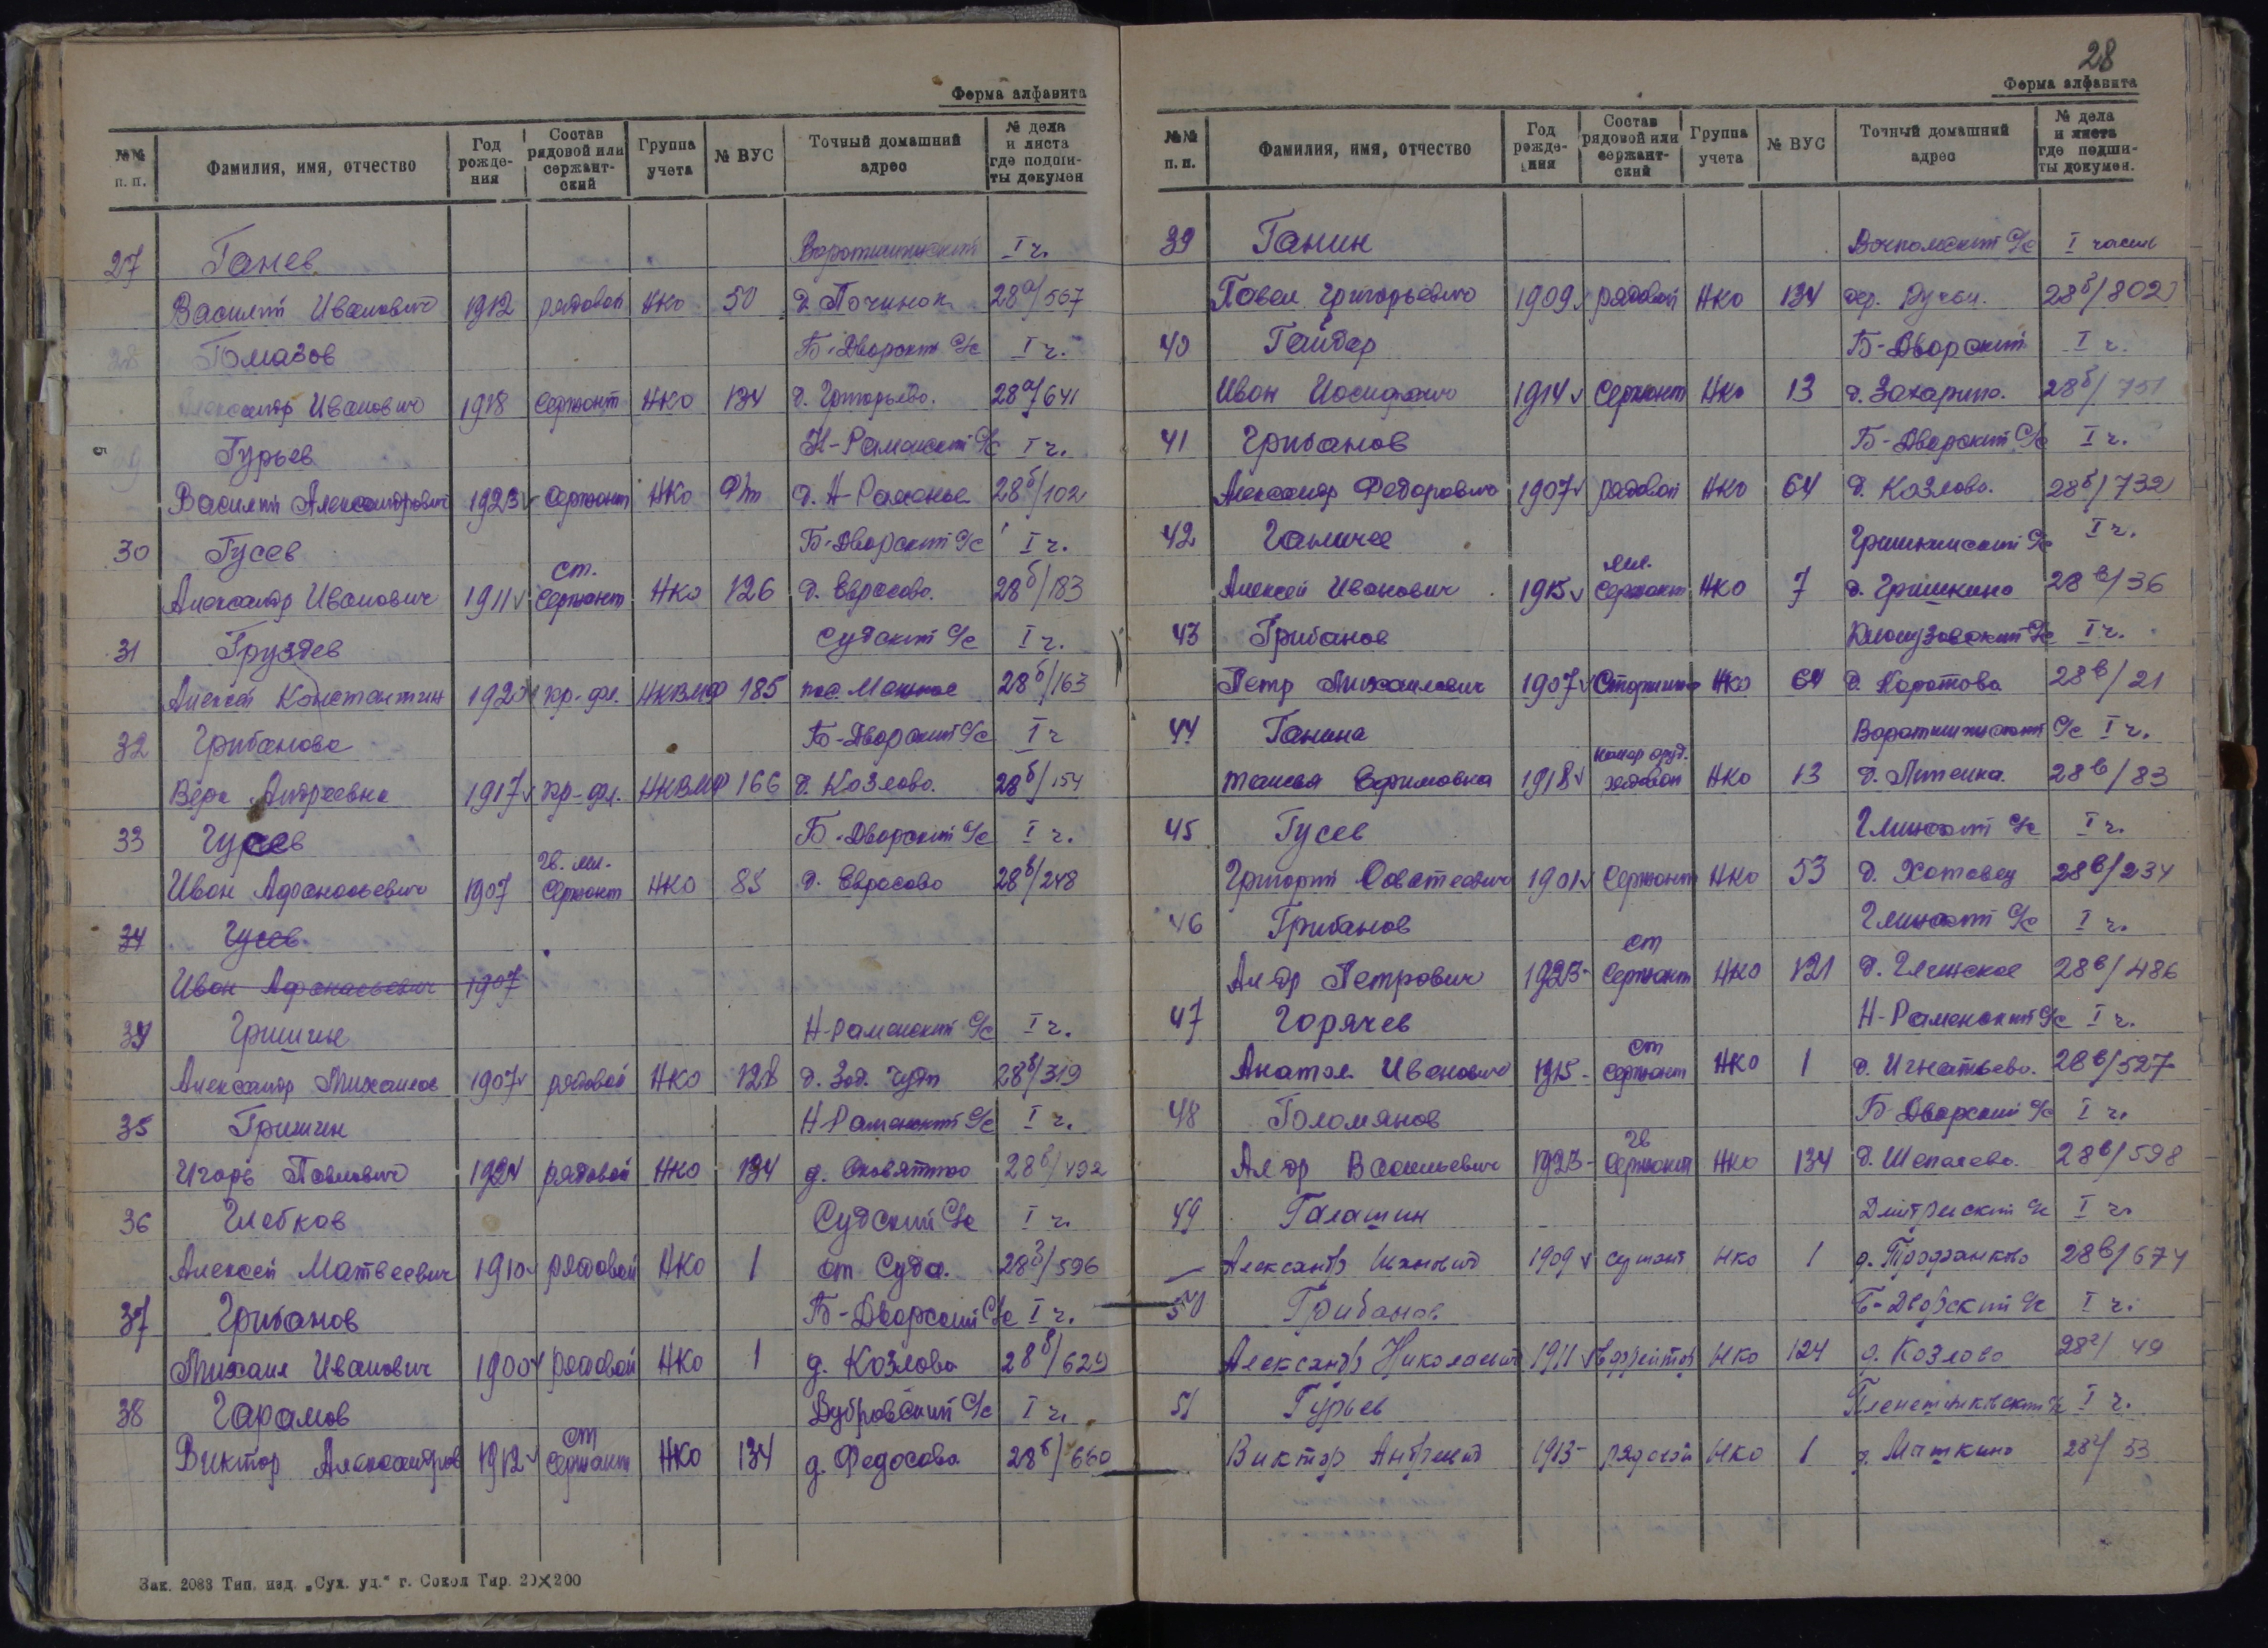 Форма алфавита
№№ п. п. Фамилия, имя, отчество Год рожде- ния Состав рядовой или сержант- ский Группа учета № ВУС Точный домашний адрес № дела и листа где подши- ты докумен
27 Ганев Воротишинский I ч.
Василий Иванович 1912 рядовой НКО 50 д Починок 28а/567
28 Гомазов Б-Дворский С/с I ч.
Александр Иванович 1918 Сержант НКО 134 д. Григорьево. 28а/641
Гурьев Н-Раменский С/с I ч.
Василий Александрович 1923 Сержант НКО Ф/т д. Н-Раменье 28б/102
30 Гусев Б-Дворский С/с I ч.
Александр Иванович 1911 ст. Сержант НКО 126 д. Еврасово. 28б/183
31 Груздев Судский С/с I ч.
Алексей Константин 1920 кр-фл. НКВМФ 185 пос. 28б/163
32 Грибанова Б-Дворский С/с I ч
Вера Андреевна 1917 кр-фл. НКВМФ 166 д. Козлово. 28б/154
33 Гусев Б-Дворский С/с I ч.
Иван Афанасьевич 1907 Гв. мл. Сержант НКО 85 д. Еврасово 28в/248
34 Гусев
Иван Афанасьевич 1907
34 Гришин Н-Раменский С/с I ч.
Александр Михайлов 1907 рядовой НКО 128 д. Зад. Чуди 28б/319
35 Гришин Н-Раменский С/с I ч.
Игорь Павлович 1924 рядовой НКО 134 д. 28б/492
36 Глебков Судский С/с I ч.
Алексей Матвеевич 1910 рядовой НКО 1 ст Суда. 28б/596
37 Грибанов Б-Дворский С/с I ч.
Михаил Иванович 1900 рядовой НКО 1 д. Козлово 28б/629
38 Гарамов Дубровский С/с I ч.
Виктор Александров 1912 ст Сержант НКО 134 д. Федосово 28б/660
Зак. 2088 Тип. изд. „Сух. уд.“ г. Сокол Тир. 20×200
28
Форма алфавита
№№ п. п. Фамилия, имя, отчество Год рожде- ния Состав рядовой или сержант- ский Группа учета № ВУС Точный домашний адрес № дела и листа где подши- ты докумен.
39 Ганин С/с I часть
Павел Григорьевич 1909 рядовой НКО 134 дер. Ручьи. 28б/802
40 Гайдар Б-Дворский I ч.
Иван Иосифович 1914 Сержант НКО 13 д. Захарино. 28б/751
41 Грибанов Б-Дворский С/с I ч.
Александр Федорович 1907 рядовой НКО 64 д. Козлово. 28б/732
42 Ганичев Гришкинский С/с I ч.
Алексей Иванович 1915 мл. Сержант НКО 7 д. Гришкино 28в/36
43 Грибанов Клопузовский С/с I ч.
Петр Михайлович 1907 Старшина НКО 64 д. Коротово 28в/21
44 Ганина Воротишинский С/с I ч.
Таисья Ефимовна 1918 рядовой НКО 13 д. 28в/83
45 Гусев Глинский С/с I ч.
Григорий Саватеевич 1901 Сержант НКО 53 д. Хотавец 28в/234
46 Грибанов Глинский С/с I ч.
Ал др Петрович 1923- ст Сержант НКО 121 д. Глинское 28в/486
47 Горячев Н-Раменский С/с I ч.
Анатол Иванович 1915- ст Сержант НКО 1 д. Игнатьево. 28в/527
48 Голомянов Б Дворский С/с I ч.
Ал др Васильевич 1923- гв Сержант НКО 134 д. Шепелево. 28в/598
49 Галашин Дмитриевский С/с I ч.
Александр Иванович 1909 НКО 1 д. Трофанково 28в/674
50 Грибанов Б-Дворский С/с I ч.
Александр Николаевич 1911 ефрейтор НКО 124 д. Козлово 28г/49
51 Гурьев I ч.
Виктор Андреевич 1913- рядовой НКО 1 д. Мяткино 28г/53